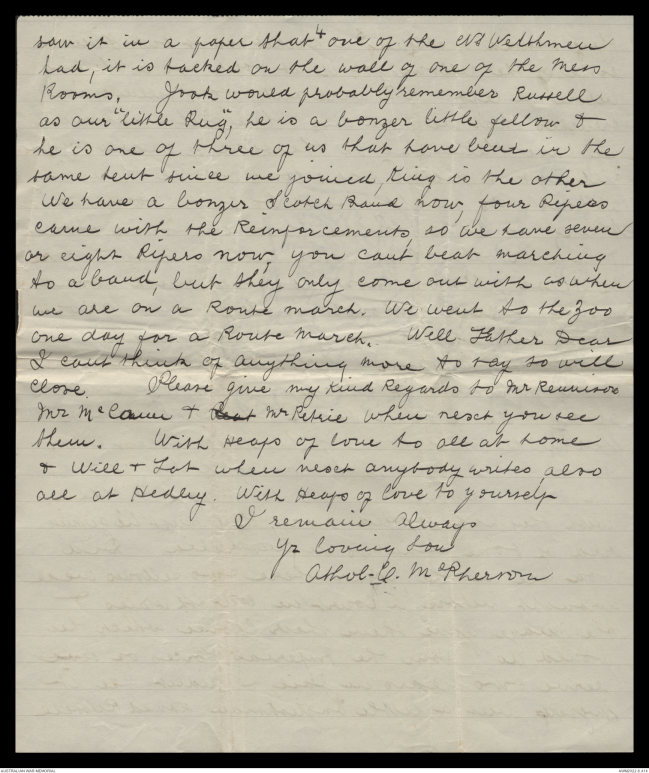 saw it in a paper that one of the Welshmen
had, it is tacked on the wall of one of the Mess
Rooms. Jock would probably remember Russell
as our "little Rug", he is a bonzer little fellow &
he is one of three of us that have been in the
same tent since we joined, King is the other
We have a bonzer Scotch Band now, four Pipers
came with the Reinforcements, so we have seven
or eight Pipers now, you cant beat marching
to a band, but they only come out with us when
we are on a Route march. We went to the Zoo
one day for a Route March. Well Father Dear
I cant think of anything more to say so will
close. Please give my Kind Regards to Mr Rennison
Mr McCann & Mr Petrie when next you see
them. With Heaps of love to all at home
& Will & Lat when next anybody writes, also
all at Hedley. With Heaps of love to yourself
I remain Always
Yr loving Son
Athol-C. McPherson
4
AUSTRALIAN WAR MEMORIAL